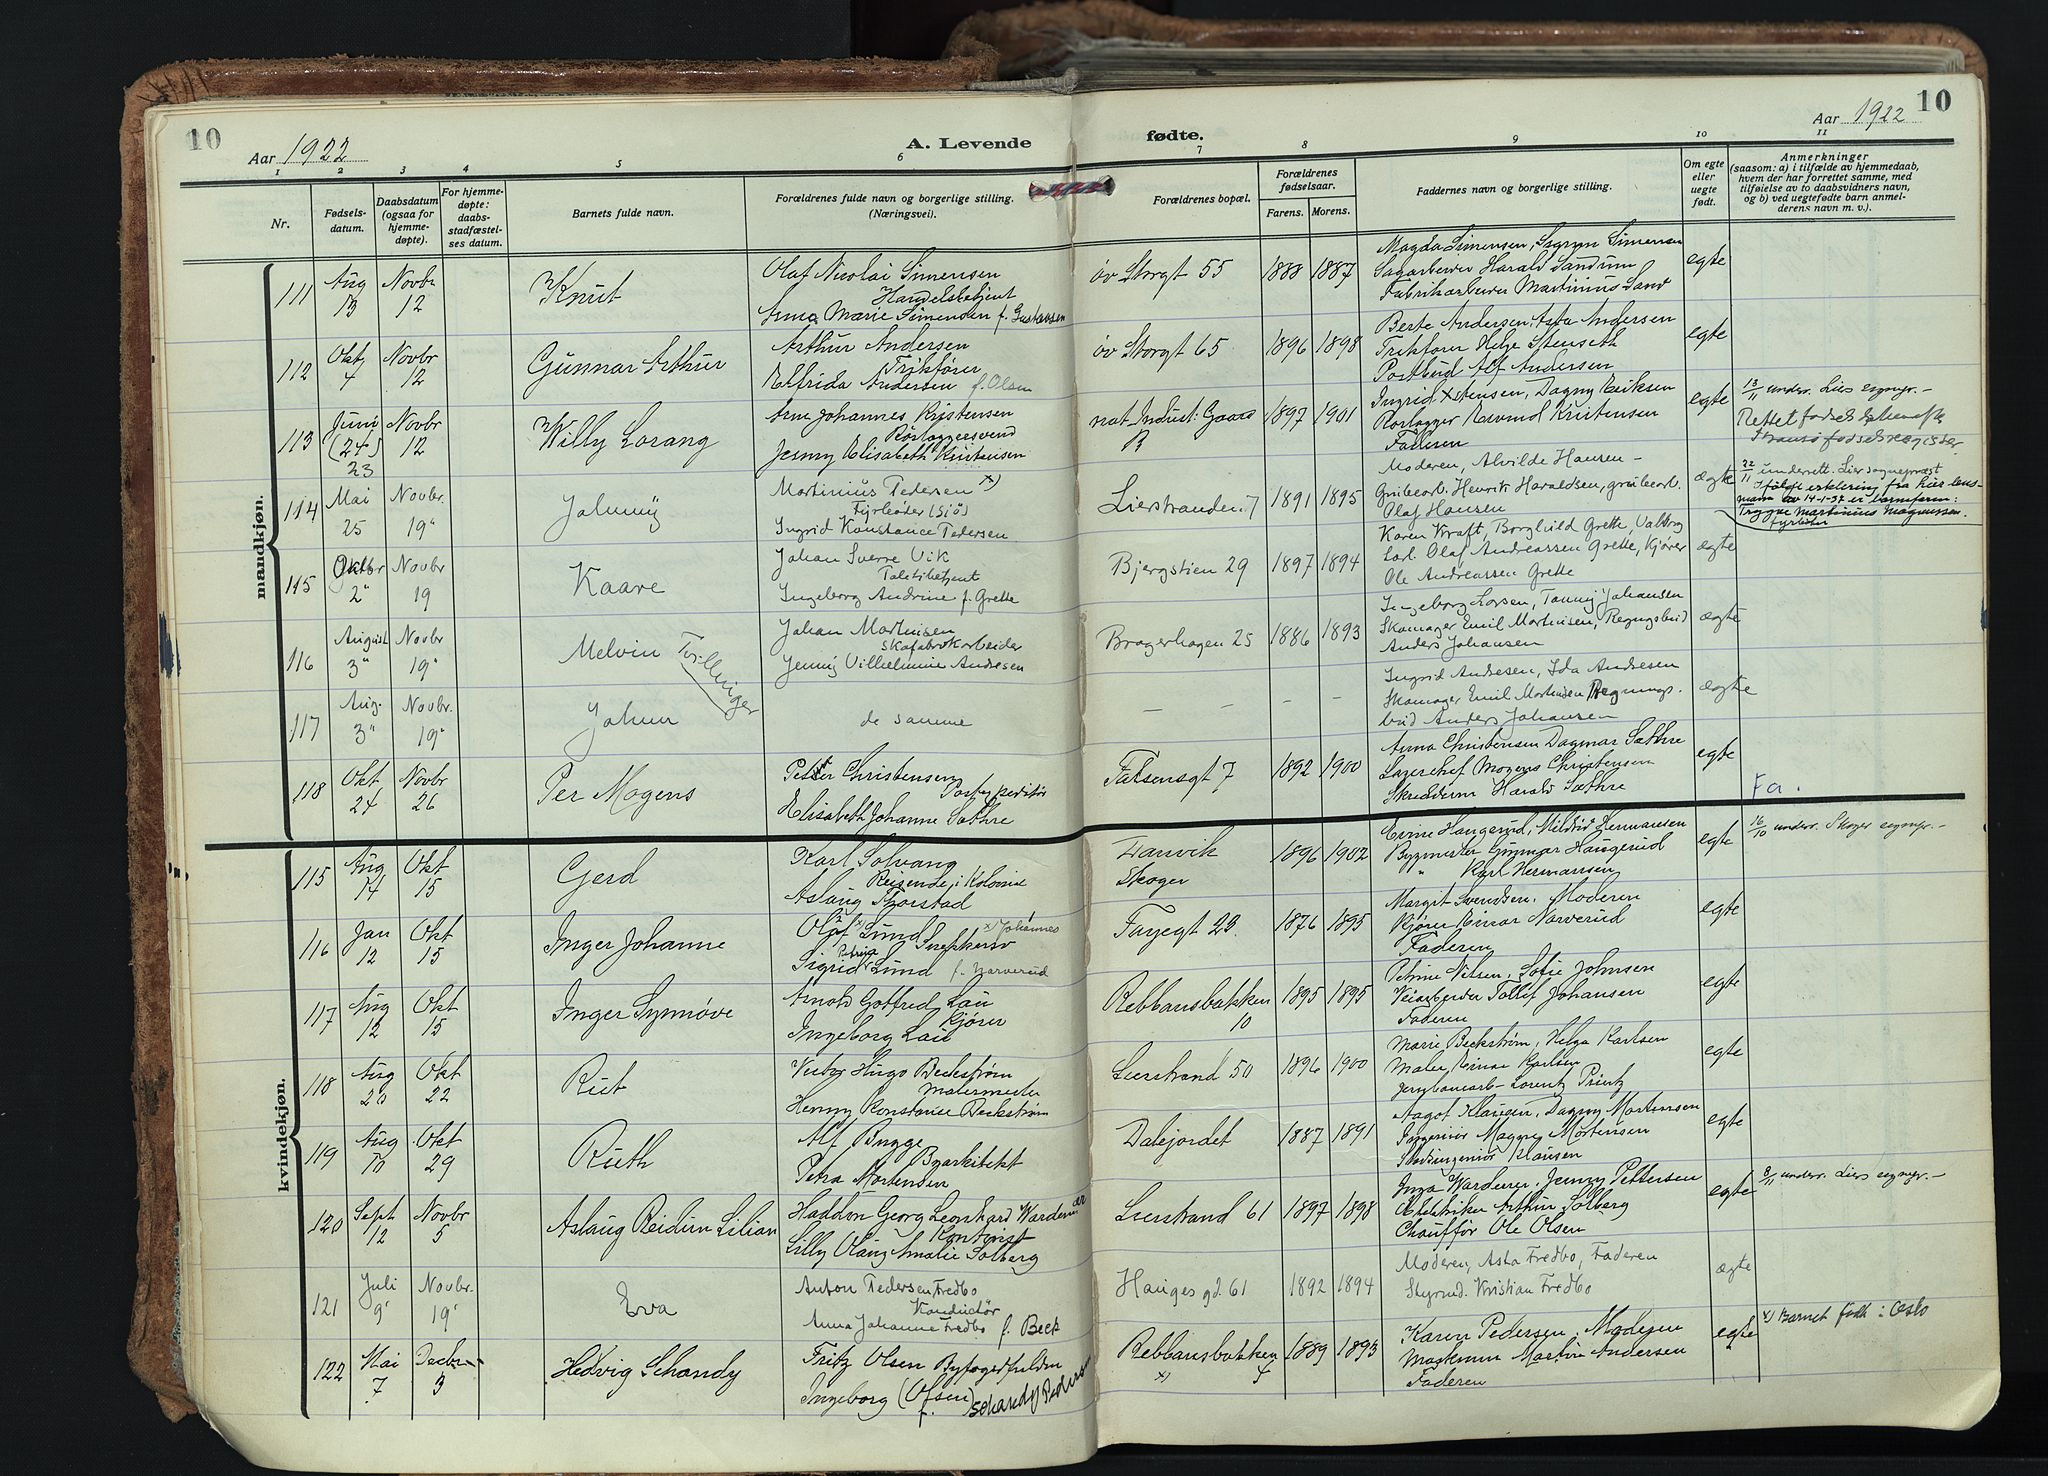 10
Aar 1922
A. Levende fødte.
Aar 1922
10
1 2 3 4 5 6 7 8 9 10 11
Nr.
Fødsels-
datum.
Daabsdatum
(ogsaa for
hjemme-
døpte).
For hjemme-
døpte:
daabs-
stadfæstel-
ses datum.
Barnets fulde navn.
Forældrenes fulde navn og borgerlige stilling.
(Næringsvei).
Forældrenes bopæl.
Forældrenes
fødselsaar.
Farens. Morens.
Faddernes navn og borgerlige stilling.
Om egte
eller
uegte
født.
Anmerkninger
(saasom: a) i tilfælde av hjemmedaab,
hvem der har forrettet samme, med
tilføielse av to daabsvidners navn,
og b) ved uegtefødte barn anmel-
derens navn m. v.).
mandkjøn.
111
Aug
13
Novbr
12
Knut
Olaf Nicolai Simensen
Handelsbetjent
Anna Marie Simensen f. Gustavsen
øv Storgt 55
1888 1887
Magda Simensen, Sigrun Simensen
Sagarbeider Harald Sandum
Fabrikarbeider Martinius Sand
egte
112
Okt
4
Novbr
12
Gunnar Arthur
Arthur Andersen
Trikfører
Elfrida Andersen f. Olsen
øv Storgt 65
1896 1898
Berte Andersen, Asta Andersen
Trikfører Helge Stenseth
Postbud Alf Andersen
egte
113
Juni
(24)
23
Novbr
12
Willy Lorang
Arne Johannes Kristensen
Rørlæggersvend
Jenny Elisabeth Kristensen
nat. Indust: Gaard
B
1897 1901
Ingrid Kristensen, Dagny Eriksen
Rørlægger Edvind Kristensen
Faderen
egte
13/11 underr. Liers sognepr. –
Rettet fødsels
fødselsregister.
114
Mai
25
Novbr.
19
Johnny
Martinius Pedersen x)
Fyrbøder (sjø)
Ingrid Konstance Pedersen
Lierstranden 7
1891 1895
Moderen, Alvilde Hansen –
Grubearb. Henrik Haraldsen, grubearb.
Olaf Hansen
ægte
22/11 underrett. Lier sogneprest
Ifølge erklering fra Lier lens-
mann av 14-1-37 er barnefaren:
Trygve Martinius Magnussen.
fyrbøter
115
Oktbr
2
Novbr
19
Kaare
Johan Sverre Vik
Ingeborg Andrine f. Grette
Bjergstien 29
1897 1894
Karen Kraft, Borghild Grette, Valborg
Carl Olaf Andreassen Grette, Kjører
Ole Andreassen Grette
ægte
116
August
3
Novbr
19
Melvin
Tvillinger
Johan Martinisen
Skofabrikarbeider
Jenny Vilhelmine Andresen
Bragerhagen 25
1886 1893
Ingeborg Larsen, Fanny Johansen
Skomager Emil Martinisen, Regningsbud
Anders Johansen
ægte
117
Aug.
3
Novbr.
19
Johan
de samme
– – – –
Ingrid Andresen, Ida Andresen
Skomager Emil Martinisen Regnings.
bud Anders Johansen
ægte
118
Okt
24
Novbr
26
Per Mogens
Petter Christensen
Postexpeditør
Elisabeth Johanne Sæthre
Falsensgt 7
1892 1900
Anna Christensen Dagmar Sæthre
Lagerchef Mogens Christensen
Skrædderm Harald Sæthre
egte
Fa.
kvindekjøn.
115
Aug
14
Okt
15
Gerd
Karl Solvang
Reisende i Kolonial
Aslaug
Skoger
1896 1902
Evine Haugerud, Mildrid Hermansen
Bygmester Gunnar Haugerud
" Karl Hermansen
egte
16/10 underr. Skoger sognepr. –
116
Jan
12
Okt
15
Inger Johanne
Olaf x) Lund x) Johannes
Snekkersv
Sigrid Petrea Lund f. Narverud
Fayegt 23
1876 1895
Margit Svendsen. Moderen
Kjører Einar Narverud
Faderen
egte
117
Aug
12
Okt
15
Inger Synnøve
Arnold Gotfred Lau
Kjører
Ingeborg Lau
Rebbansbakken
10
1895 1895
Petrine Nilsen, Sofie Johnsen
Veiarbeider Tollef Johansen
Faderen
egte
118
Aug
20
Okt
22
Rut
Victor Hugo Beckstrøm
Malermester
Henny Konstance Beckstrøm
Lierstrand 50
1896 1900
Marie Beckstrøm, Helga Karlsen
Maler Einar Karlsen
Jernbanearb– Lorentz Printz
egte
119
Aug
10
Okt
29
Ruth
Alf Bugge
Byarkitekt
Petra Mortensen
Dalejordet
1887 1891
Aagot Klausen, Dagny Mortensen
Ingeniør Magne Mortensen
Stadsingeniør Klausen
egte
120
Sept
12
Novbr
5
Aslaug Reidun Lilian
Haddon Georg Leonhard Wardener
Kontorist
Lilly Olaug Amalie Solberg
Lierstrand 61
1897 1898
Inga Wardener, Jenny Pettersen
Elektriker Arthur Solberg
Chauffør Ole Olsen
egte
8/11 underr. Liers sognepr. –
121
Juli
9
Novbr.
19
Eva
Anton Pedersen Fredbo
Konduktør
Anna Johanne Fredbo f. Beck
Hauges gd. 61
1892 1894
Moderen, Asta Fredbo, Faderen
Styrmd. Kristian Fredbo
ægte
122
Mai
7
Decbr
3
Hedvig Schandy
Fritz Olsen Byfogedfuldm
Ingeborg (Olsen) f. Schandy Pedersen
Rebbansbakken
x) 4
1889 1893
Karen Pedersen, Moderen
Maskinm Martin Andersen
Faderen
egte
x) Barnet født i Oslo